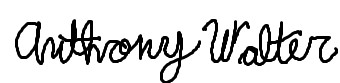 Anthrony Walter